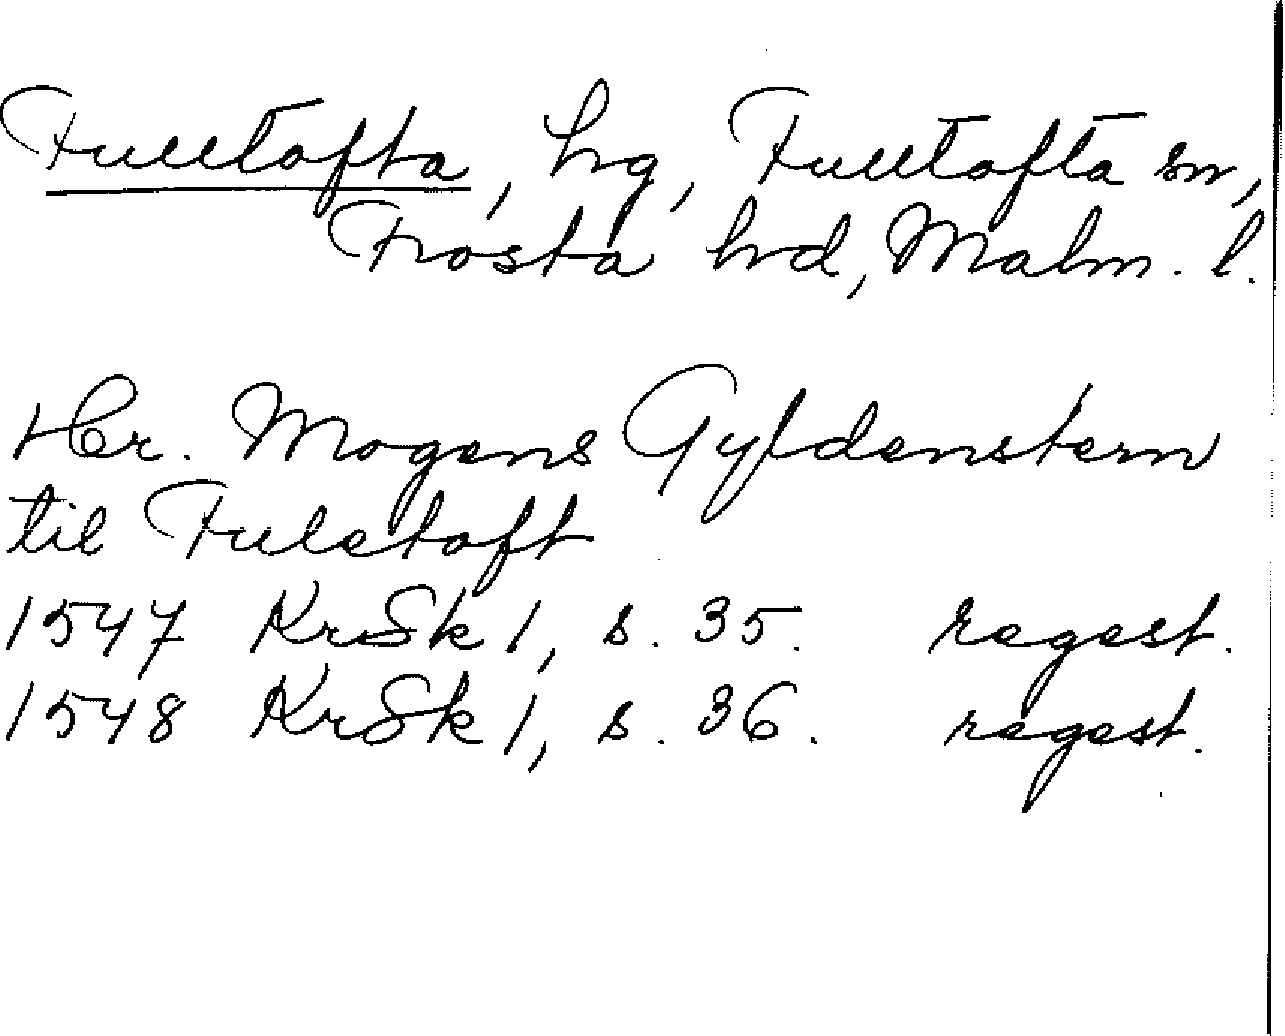 Fulltofta, hg, Fulltofta sn,
Frosta hd, Malm. l.
Her. Mogens Gyldenstern
til Fuletoft
1547 KrSk 1, s. 35. regest.
1548 KrSk 1, s. 36. regest.